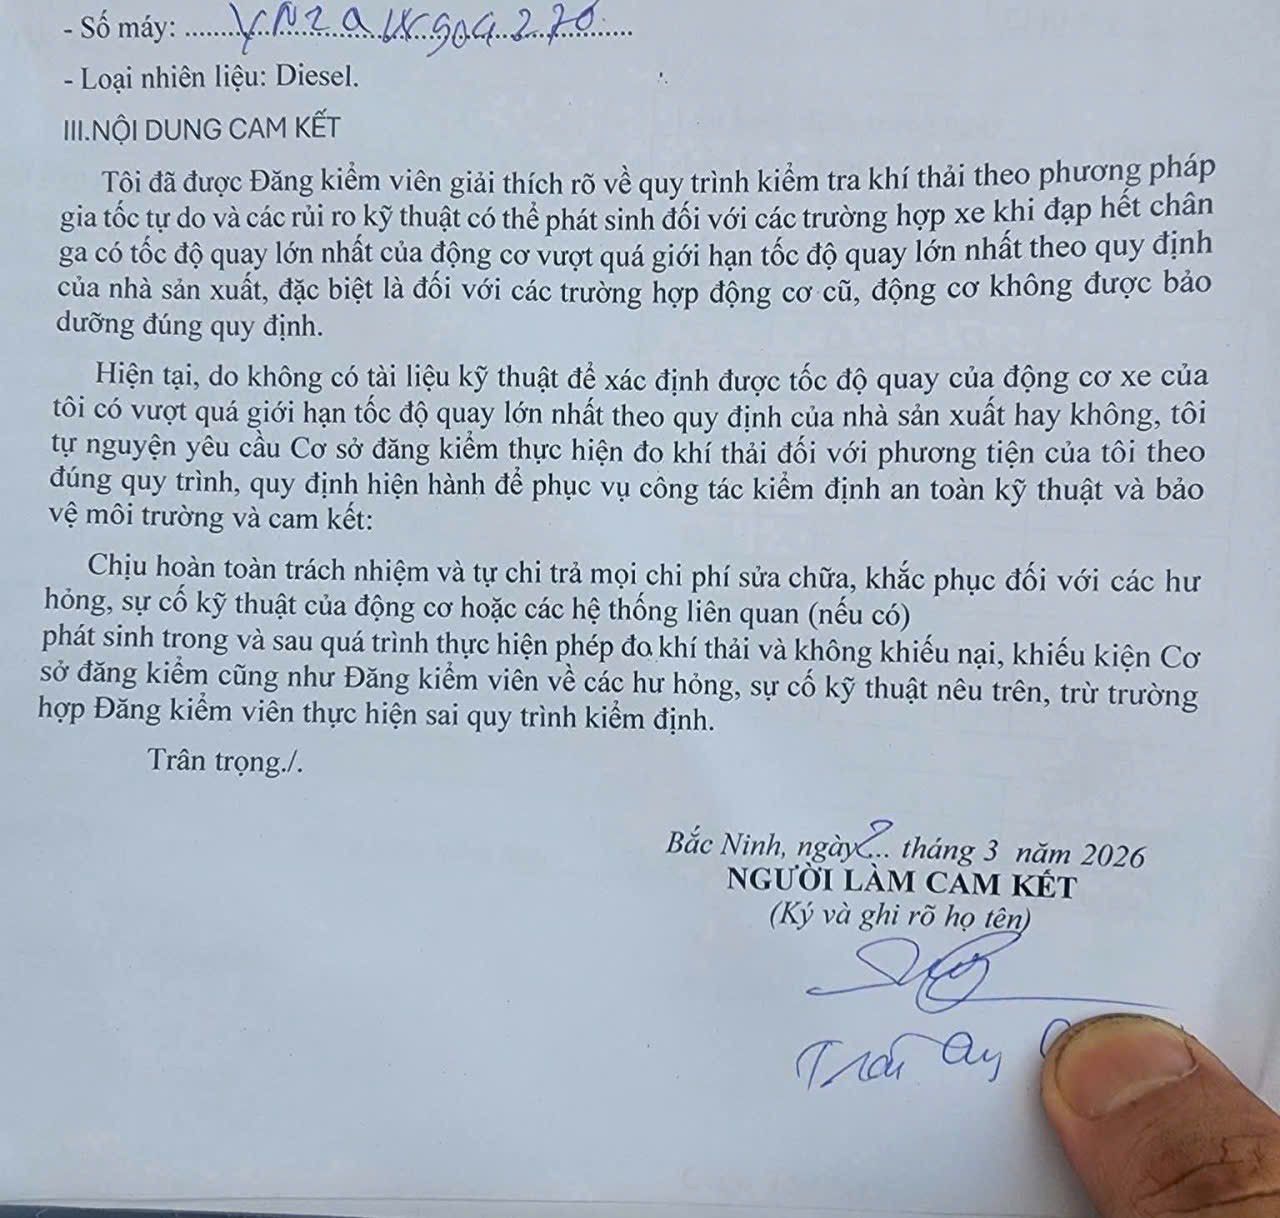 - Số máy: ...........................
- Loại nhiên liệu: Diesel.
III.NỘI DUNG CAM KẾT
Tôi đã được Đăng kiểm viên giải thích rõ về quy trình kiểm tra khí thải theo phương pháp
gia tốc tự do và các rủi ro kỹ thuật có thể phát sinh đối với các trường hợp xe khi đạp hết chân
ga có tốc độ quay lớn nhất của động cơ vượt quá giới hạn tốc độ quay lớn nhất theo quy định
của nhà sản xuất, đặc biệt là đối với các trường hợp động cơ cũ, động cơ không được bảo
dưỡng đúng quy định.
Hiện tại, do không có tài liệu kỹ thuật để xác định được tốc độ quay của động cơ xe của
tôi có vượt quá giới hạn tốc độ quay lớn nhất theo quy định của nhà sản xuất hay không, tôi
tự nguyện yêu cầu Cơ sở đăng kiểm thực hiện đo khí thải đối với phương tiện của tôi theo
đúng quy trình, quy định hiện hành để phục vụ công tác kiểm định an toàn kỹ thuật và bảo
vệ môi trường và cam kết:
Chịu hoàn toàn trách nhiệm và tự chi trả mọi chi phí sửa chữa, khắc phục đối với các hư
hỏng, sự cố kỹ thuật của động cơ hoặc các hệ thống liên quan (nếu có)
phát sinh trong và sau quá trình thực hiện phép đo khí thải và không khiếu nại, khiếu kiện Cơ
sở đăng kiểm cũng như Đăng kiểm viên về các hư hỏng, sự cố kỹ thuật nêu trên, trừ trường
hợp Đăng kiểm viên thực hiện sai quy trình kiểm định.
Trân trọng./.
Bắc Ninh, ngày 2... tháng 3 năm 2026
NGƯỜI LÀM CAM KẾT
(Ký và ghi rõ họ tên)